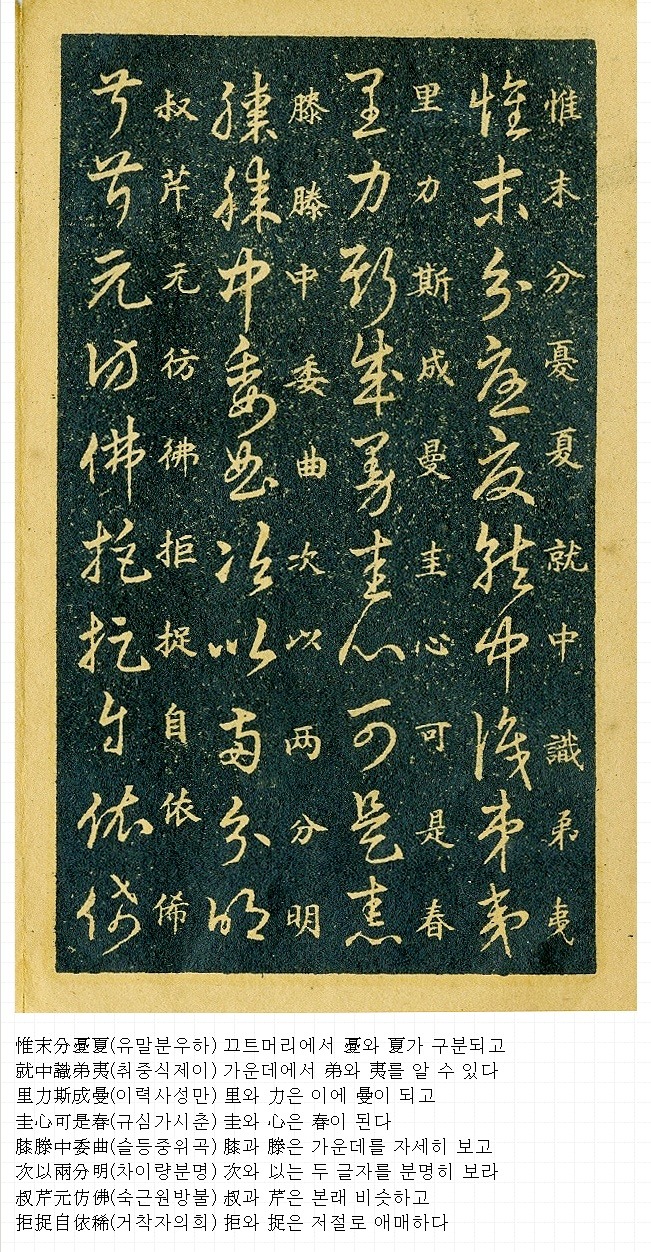 惟末分憂夏就中識弟夷
惟末分憂夏就中識弟夷
里力斯成曼圭心可是春
里力斯成曼圭心可是春
膝滕中委曲次以两分明
膝滕中委曲次以両分明
叔芹元仿彿拒捉自依俙
叔芹元仿佛拒捉自依俙
惟末分憂夏(유말분우하) 끄트머리에서 憂와 夏가 구분되고
就中識弟夷(취중식제이) 가운데에서 弟와 夷를 알 수 있다
里力斯成曼(이력사성만) 里와 力은 이에 曼이 되고
圭心可是春(규심가시춘) 圭와 心은 春이 된다
膝滕中委曲(슬등중위곡) 膝과 滕은 가운데를 자세히 보고
次以兩分明(차이량분명) 次와 以는 두 글자를 분명히 보라
叔芹元仿佛(숙근원방불) 叔과 芹은 본래 비슷하고
拒捉自依稀(거착자의희) 拒와 捉은 저절로 애매하다